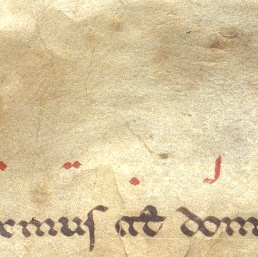 emus ad dom